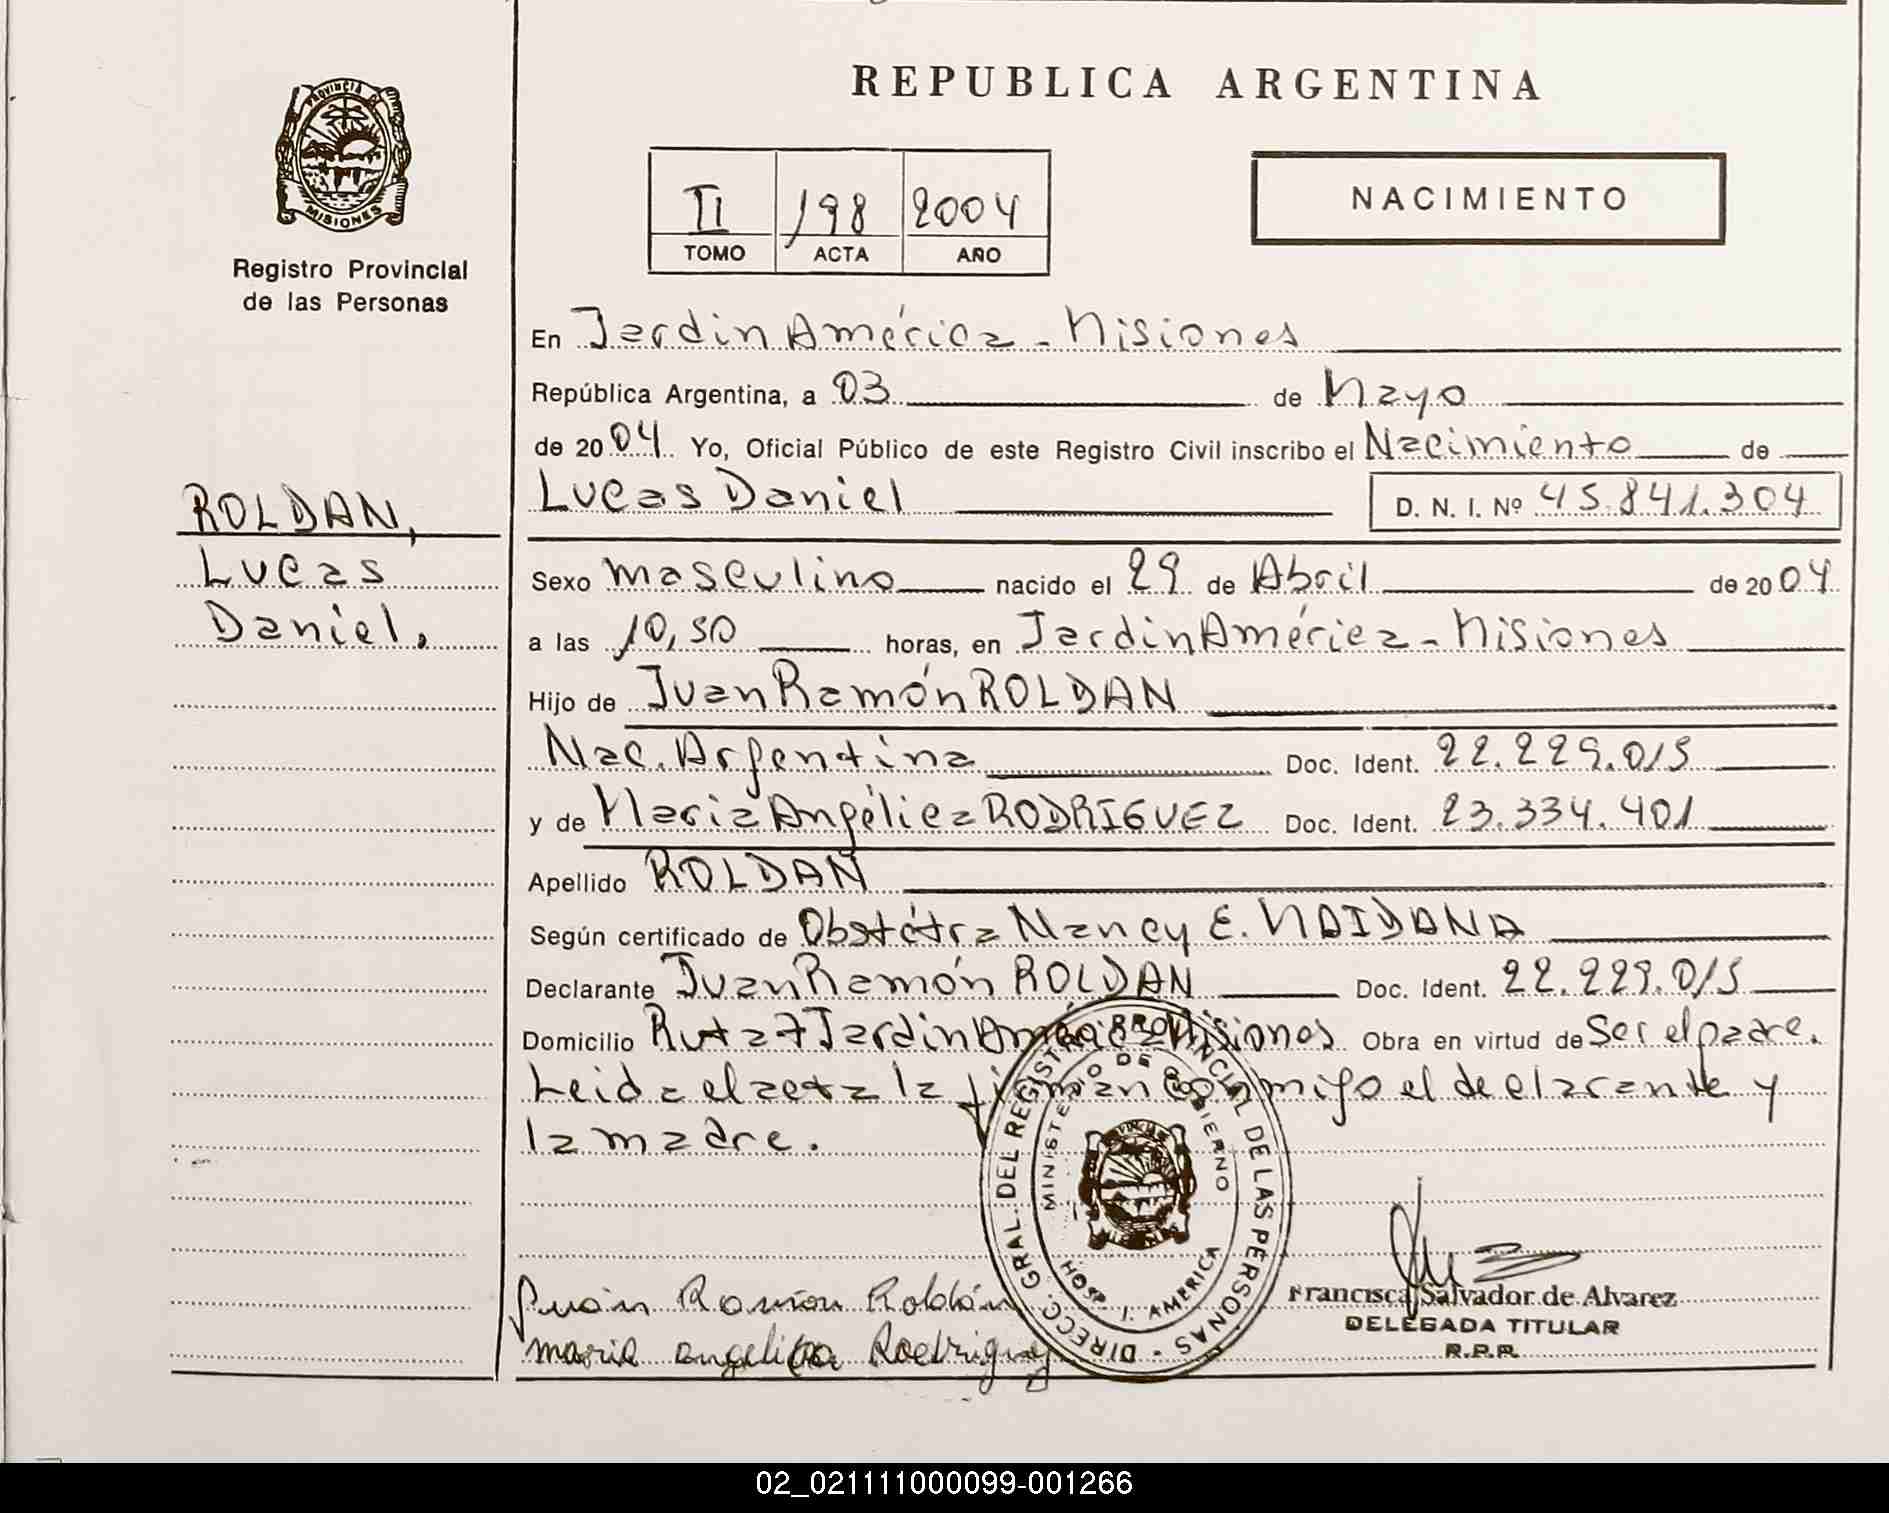 REPUBLICA ARGENTINA
PROVINCIA DE
MISIONES
Registro Provincial
de las Personas
II 198 2004
TOMO ACTA AÑO
NACIMIENTO
En Jardin América - Misiones
República Argentina, a 03 de Mayo
de 2004 Yo, Oficial Público de este Registro Civil inscribo el Nacimiento de
Lucas Daniel D. N. I. Nº 45.841.304
ROLDAN,
Lucas
Daniel.
Sexo masculino nacido el 29 de Abril de 2004
a las 10,50 horas, en Jardin América - Misiones
Hijo de Juan Ramón ROLDAN
Nac. Argentina Doc. Ident. 22.229.015
y de Maria Angélica RODRIGUEZ Doc. Ident. 23.334.401
Apellido ROLDAN
Según certificado de Obstétra Nancy E. MAIDANA
Declarante Juan Ramón ROLDAN Doc. Ident. 22.229.015
Domicilio Ruta 7 Jardin América Misiones Obra en virtud de Ser el padre.
Leida el acta la firman conmigo el declarante y
la madre.
DIRECC. GRAL. DEL REGISTRO PROVINCIAL DE LAS PERSONAS
MINISTERIO DE GOBIERNO
HOSP. J. AMERICA
Juan Ramon Roldán
maria angelica Rodriguez
Francisca Salvador de Alvarez
DELEGADA TITULAR
R.P.P.
02_021111000099-001266